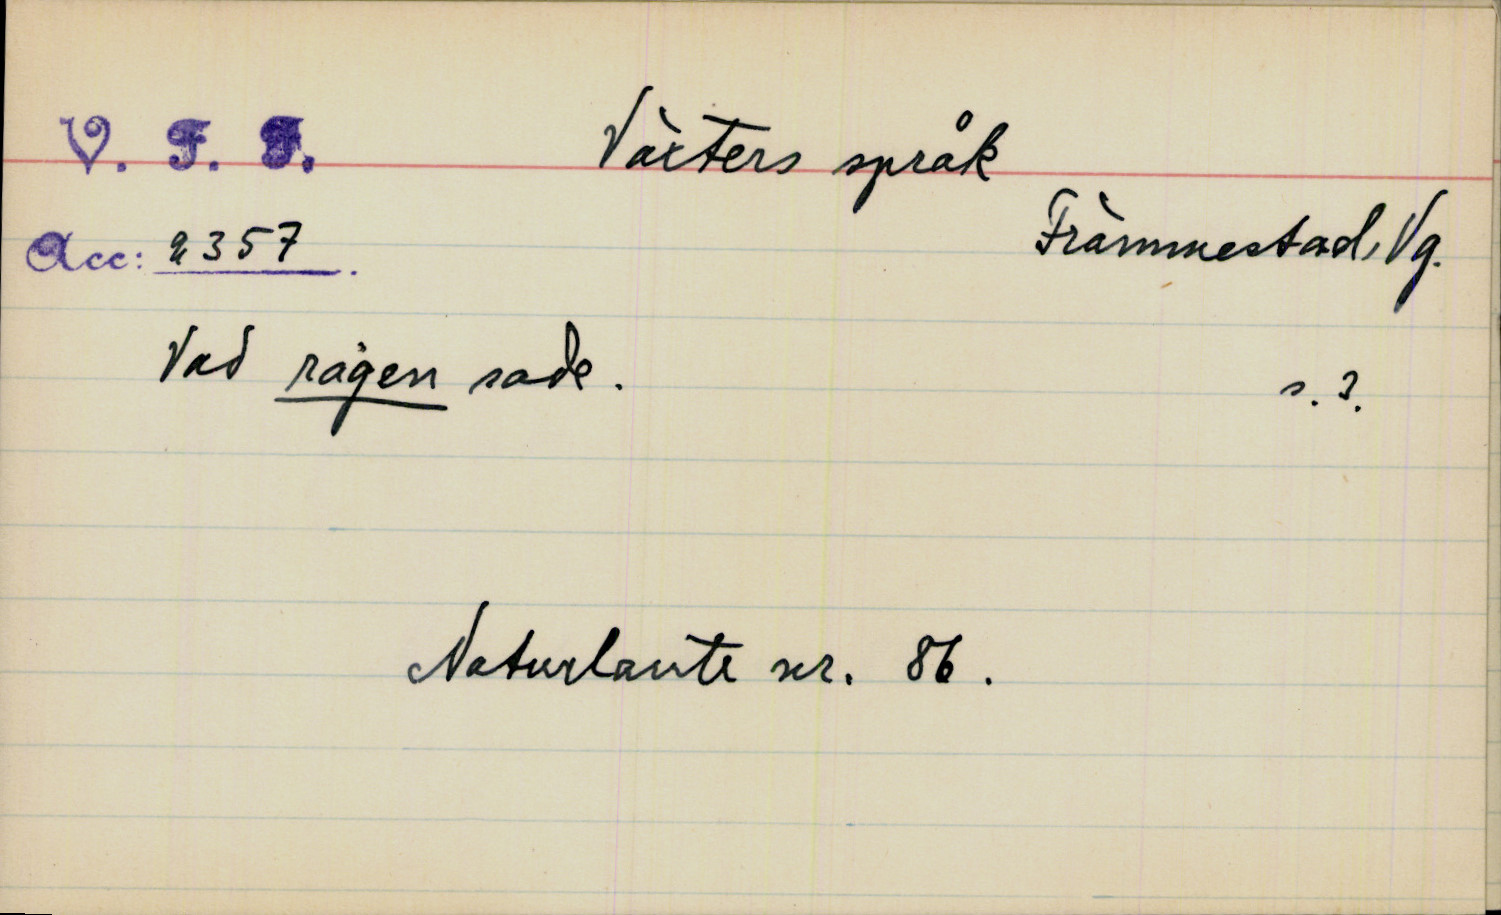 V. F. F.
Växters språk
Främmestad, Vg.
Acc: 2357.
Vad rågen sade.
s. 3.
Naturlaute nr. 86.